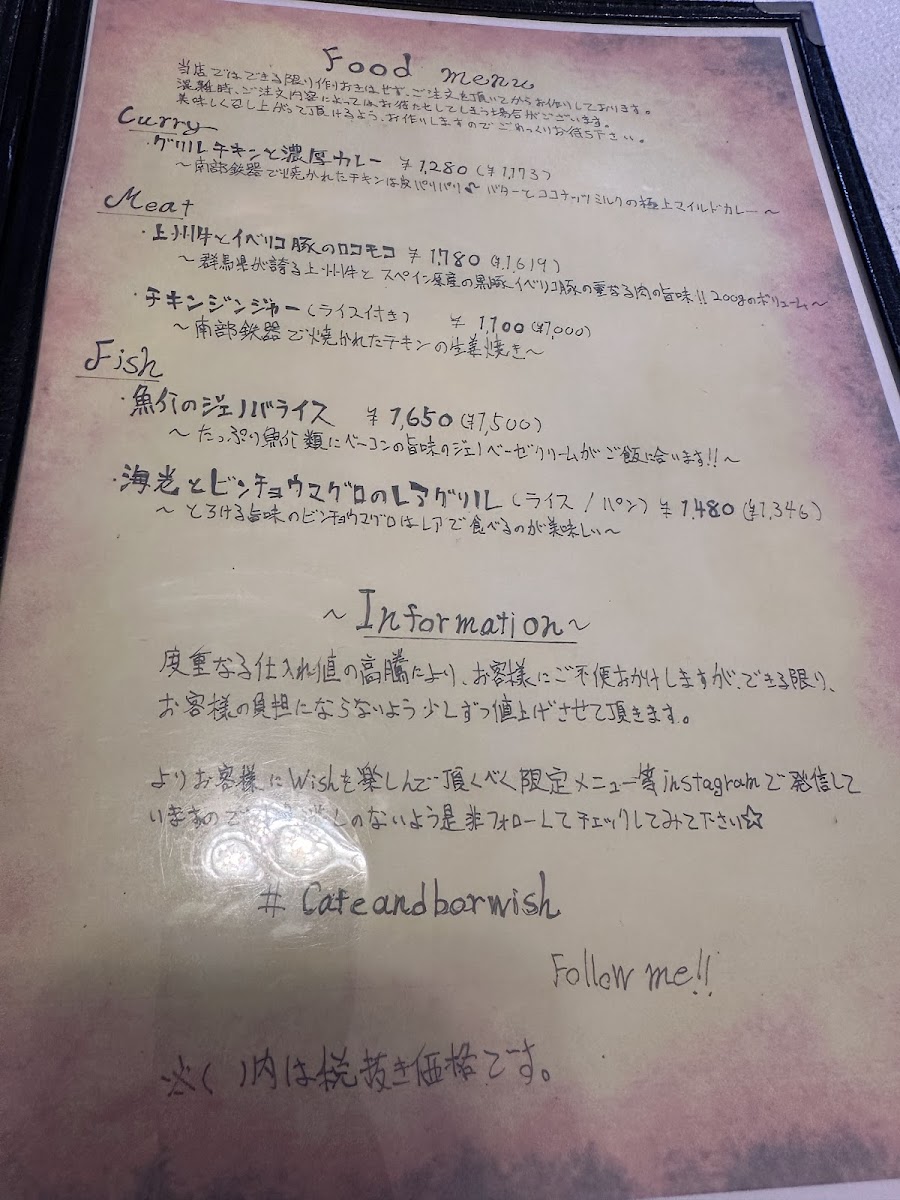 Food menu
当店ではできる限り作りおきはせず、ご注文を頂いてからお作りしております。
混雑時、ご注文内容によってはお待たせしてしまう場合がございます。
美味しく召し上がって頂けるよう、お作りしますのでごゆっくりお待ち下さい。
Curry
・グリルチキンと濃厚カレー ¥1,280(¥1,173)
〜南部鉄器で焼かれたチキンは皮パリパリ♪ バターとココナッツミルクの極上マイルドカレー〜
Meat
・上州牛とイベリコ豚のロコモコ ¥1,780(¥1,619)
〜群馬県が誇る上州牛とスペイン原産の黒豚イベリコ豚の重なる肉の旨味!!200gのボリューム〜
・チキンジンジャー(ライス付き) ¥1,100(¥1,000)
〜南部鉄器で焼かれたチキンの生姜焼き〜
Fish
・魚介のジェノバライス ¥1,650(¥1,500)
〜たっぷり魚介類にベーコンの旨味のジェノベーゼクリームがご飯に合います!!〜
・海老とビンチョウマグロのレアグリル(ライス/パン) ¥1,480(¥1,346)
〜とろける旨味のビンチョウマグロはレアで食べるのが美味しい〜
〜Information〜
度重なる仕入れ値の高騰により、お客様にご不便おかけしますが、できる限り、
お客様の負担にならないよう少しずつ値上げさせて頂きます。
よりお客様にWishを楽しんで頂くべく限定メニュー等instagramで発信して
いますので しのないよう是非フォローしてチェックしてみて下さい☆
# Cafeandbarwish
Follow me!!
※( )内は税抜き価格です。